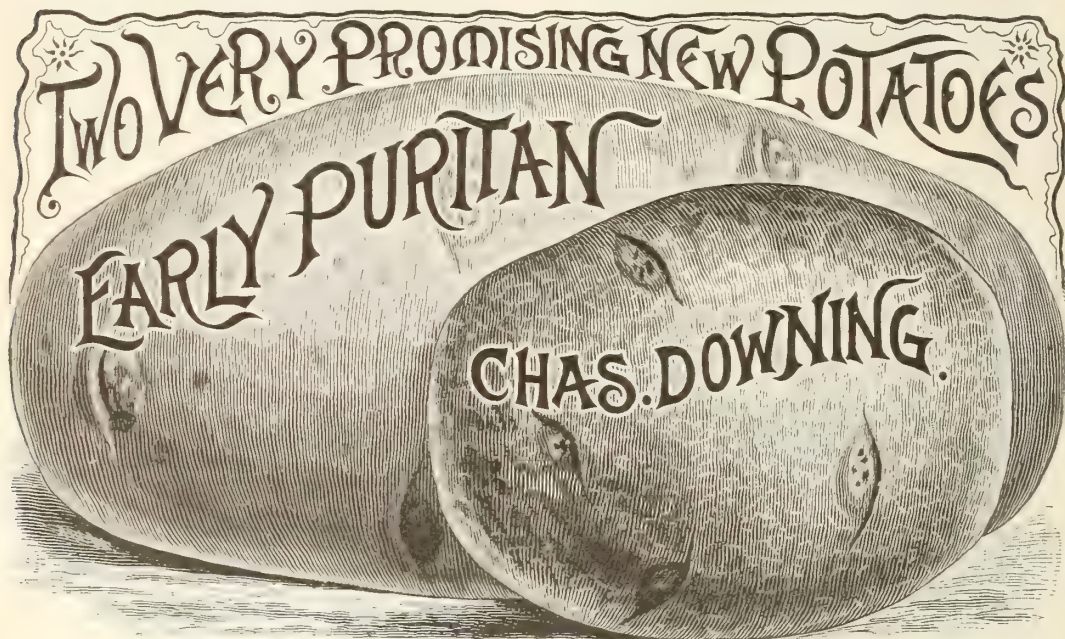 TWO VERY PROMISING NEW POTATOES
EARLY PURITAN
CHAS. DOWNING.